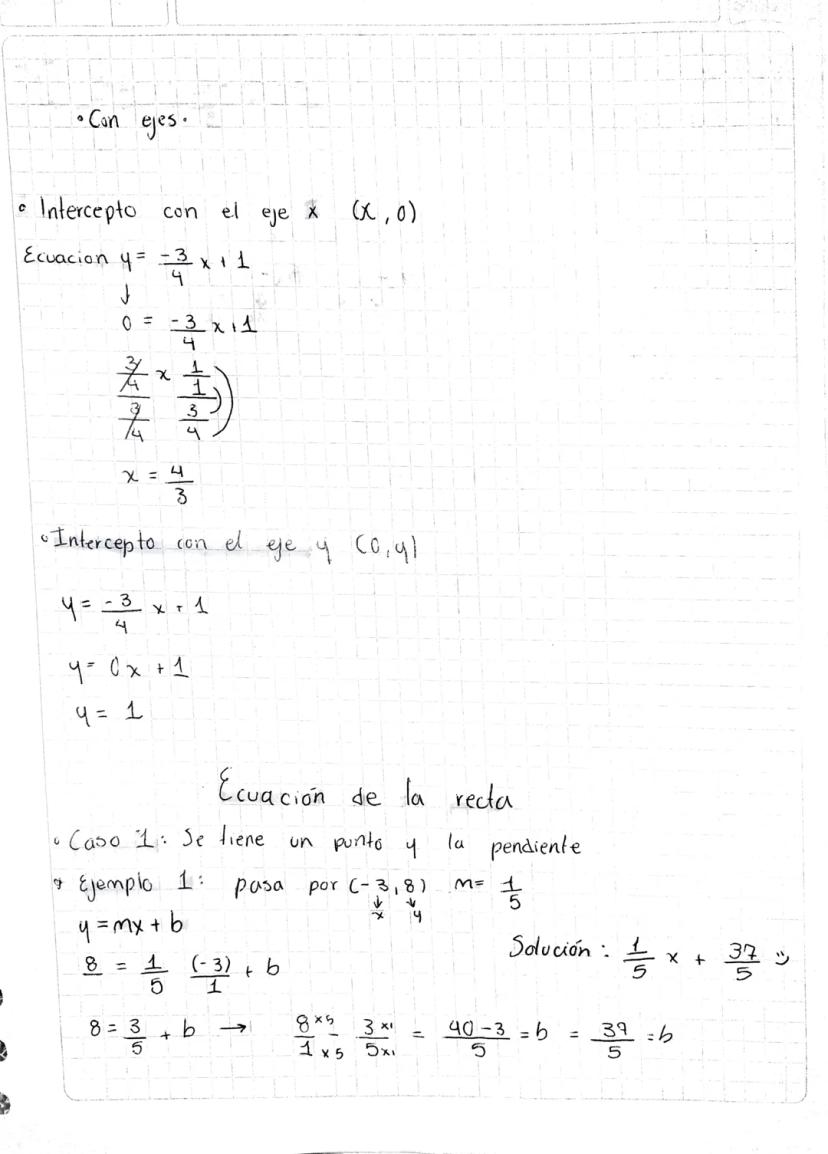 • Con ejes.
• Intercepto con el eje x (x, 0)
Ecuacion y = -3/4 x + 1
↓
0 = -3/4 x + 1
(3/4)/(3/4) x (1/1)/(3/4)
x = 4/3
• Intercepto con el eje y (0, y)
y = -3/4 x + 1
y = 0x + 1
y = 1
Ecuación de la recta
• Caso 1: Se tiene un punto y la pendiente
• Ejemplo 1: pasa por (-3, 8) m = 1/5
↓ ↓
x y
y = mx + b
Solución: 1/5 x + 37/5 :)
8 = 1/5 (-3)/1 + b
8 = 3/5 + b → 8 x5/1 x5 - 3 x1/5 x1 = 40 - 3/5 = b = 37/5 = b